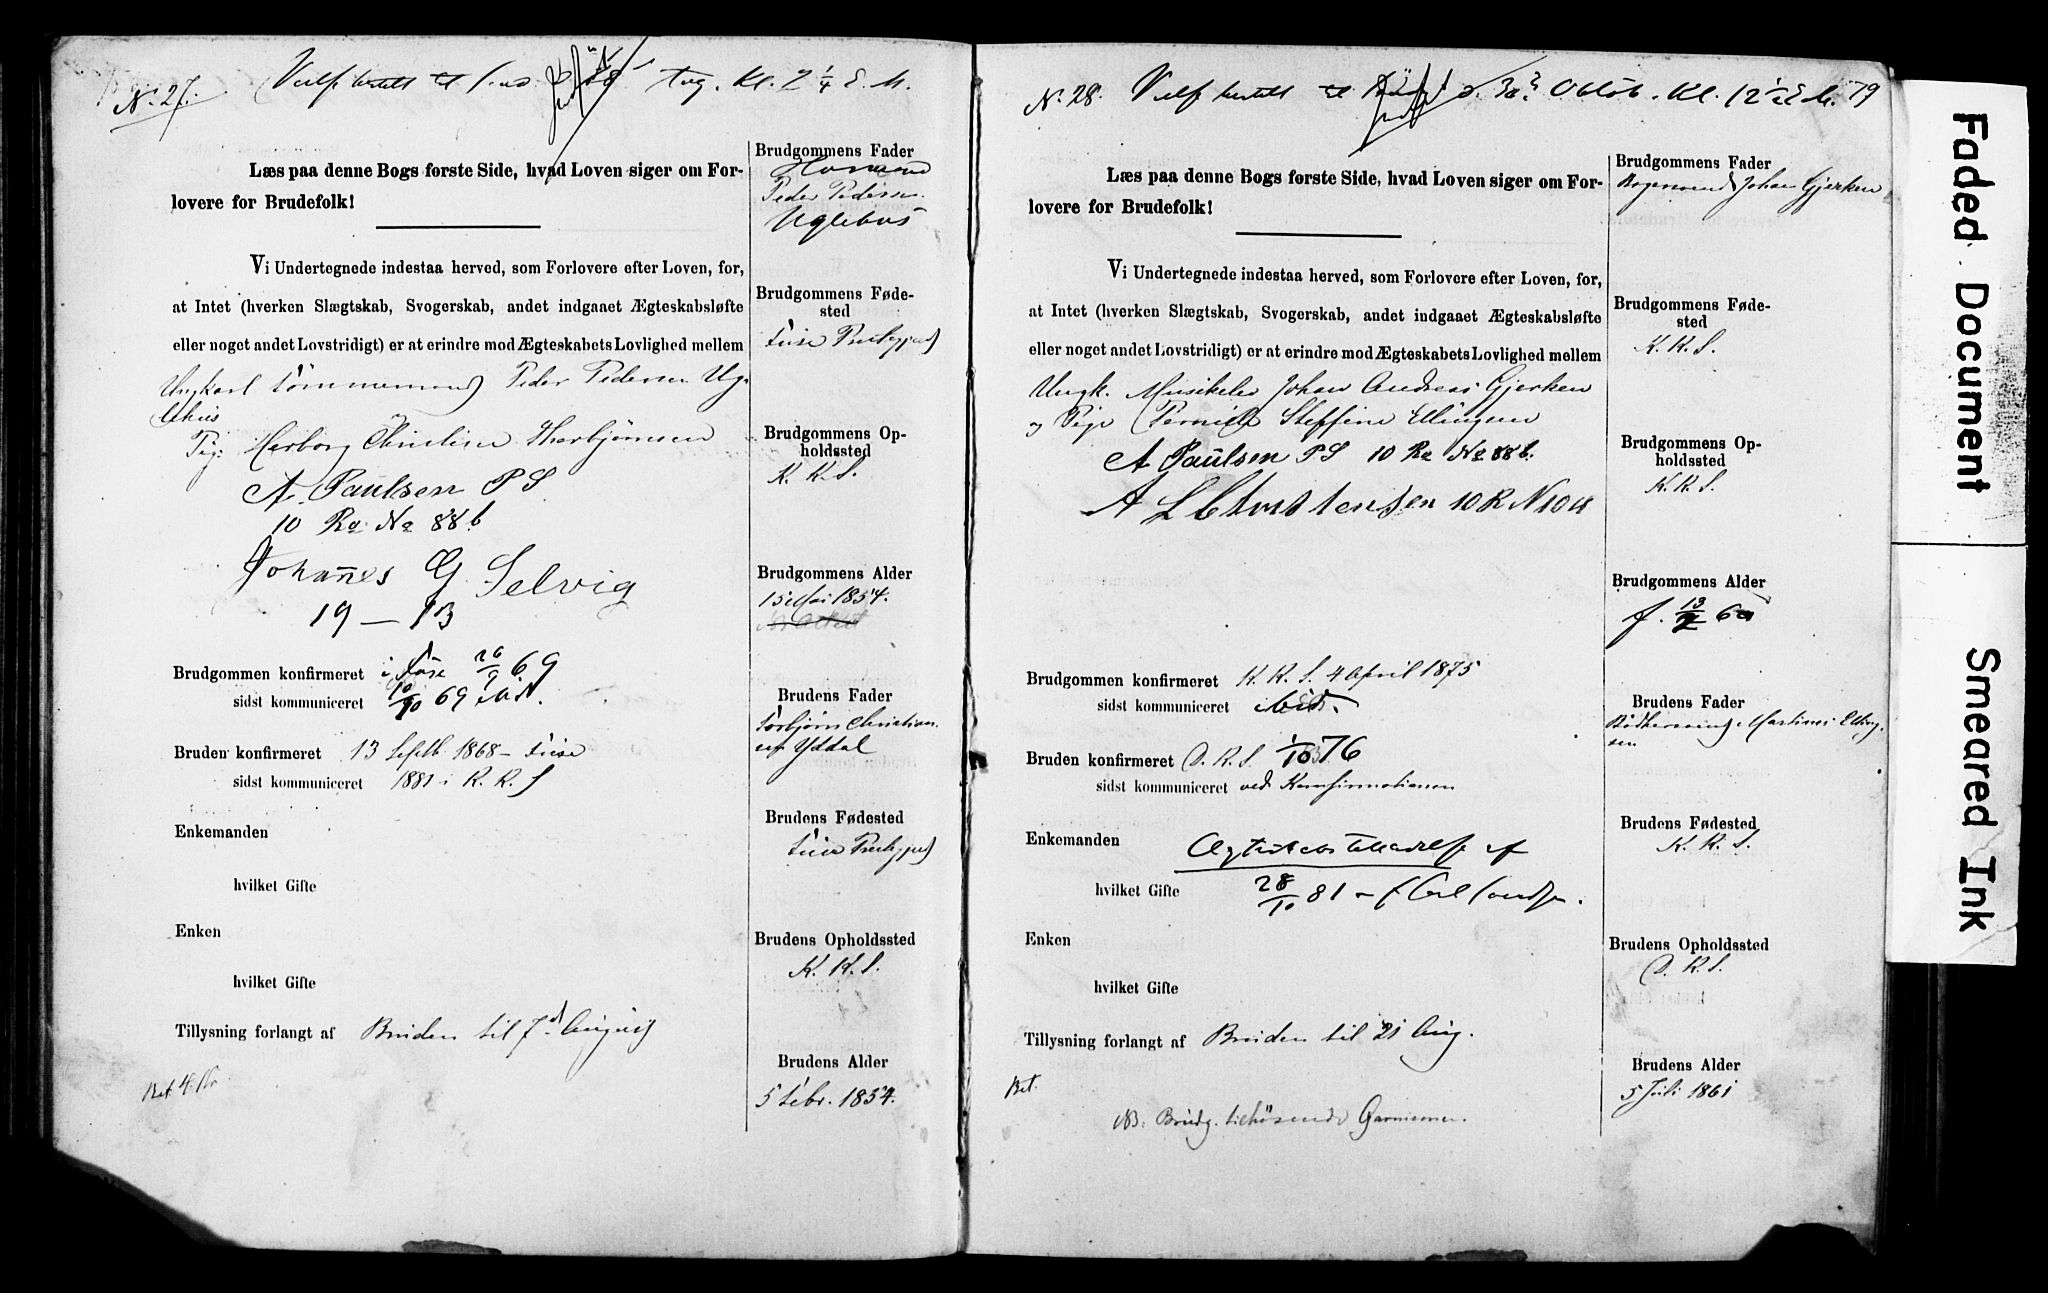 No. 27. Vielse bestilt til d. 28 Aug. Kl. 2 1/4 E. M.
Læs paa denne Bogs første Side, hvad Loven siger om For-
lovere for Brudefolk!
Vi Undertegnede indestaa herved, som Forlovere efter Loven, for,
at Intet (hverken Slægtskab, Svogerskab, andet indgaaet Ægteskabsløfte
eller noget andet Lovstridigt) er at erindre mod Ægteskabets Lovlighed mellem
Ungkarl Tømmermand Peder Pedersen Ug-
lehus
Pig: Herborg Christine Thorbjørnsen
A. Paulsen P S
10 Ro No 88 b
Johannes G. Selvig
19 — 13
Brudgommen konfirmeret i Fuse 26/9 69
sidst kommuniceret 10/10 69
Bruden konfirmeret 13 Septb. 1868 – Fuse
sidst kommuniceret 1881 i K. K. S
Enkemanden
hvilket Gifte
Enken
hvilket Gifte
Tillysning forlangt af Bruden til 7d August
Bet 4 Kr
Brudgommens Fader
Husmand
Peder Pedersen
Uglehus
Brudgommens Føde-
sted
Fuse Prestegjeld
Brudgommens Op-
holdssted
K. K. S.
Brudgommens Alder
15 Mai 1854.
Brudens Fader
Torbjørn Christian-
sen Yddal
Brudens Fødested
Fuse Prestegjeld
Brudens Opholdssted
K. K. S.
Brudens Alder
5 Febr. 1854.
No. 28. bestilt til d. 30 Oktob. Kl. 12 1/2 E M. 79
Læs paa denne Bogs første Side, hvad Loven siger om For-
lovere for Brudefolk!
Vi Undertegnede indestaa herved, som Forlovere efter Loven, for,
at Intet (hverken Slægtskab, Svogerskab, andet indgaaet Ægteskabsløfte
eller noget andet Lovstridigt) er at erindre mod Ægteskabets Lovlighed mellem
Ungk. Musikelev Johan Andreas Gjerken
og Pige Pernille Steffine Ellingsen
A Paulsen P S 10 Ro No 88 b.
A L Christensen 10 R N 10 a
Brudgommen konfirmeret K. K. S. 4 April 1875
sidst kommuniceret
Bruden konfirmeret D. K. S. 1/10 76
sidst kommuniceret ved Konfirmationen
Enkemanden
hvilket Gifte 28/10 81
Enken
hvilket Gifte
Tillysning forlangt af Bruden til 21 Aug.
Bet.
NB. Brudg. tilhørende Garnisonen.
Brudgommens Fader
Johan Gjerken
Brudgommens Føde-
sted
K. K. S.
Brudgommens Op-
holdssted
K. K. S.
Brudgommens Alder
f. 13/2 60
Brudens Fader
Martinus Elling-
sen
Brudens Fødested
K. K. S.
Brudens Opholdssted
D. K. S.
Brudens Alder
5 Juli 1861
Faded Document
Smeared Ink